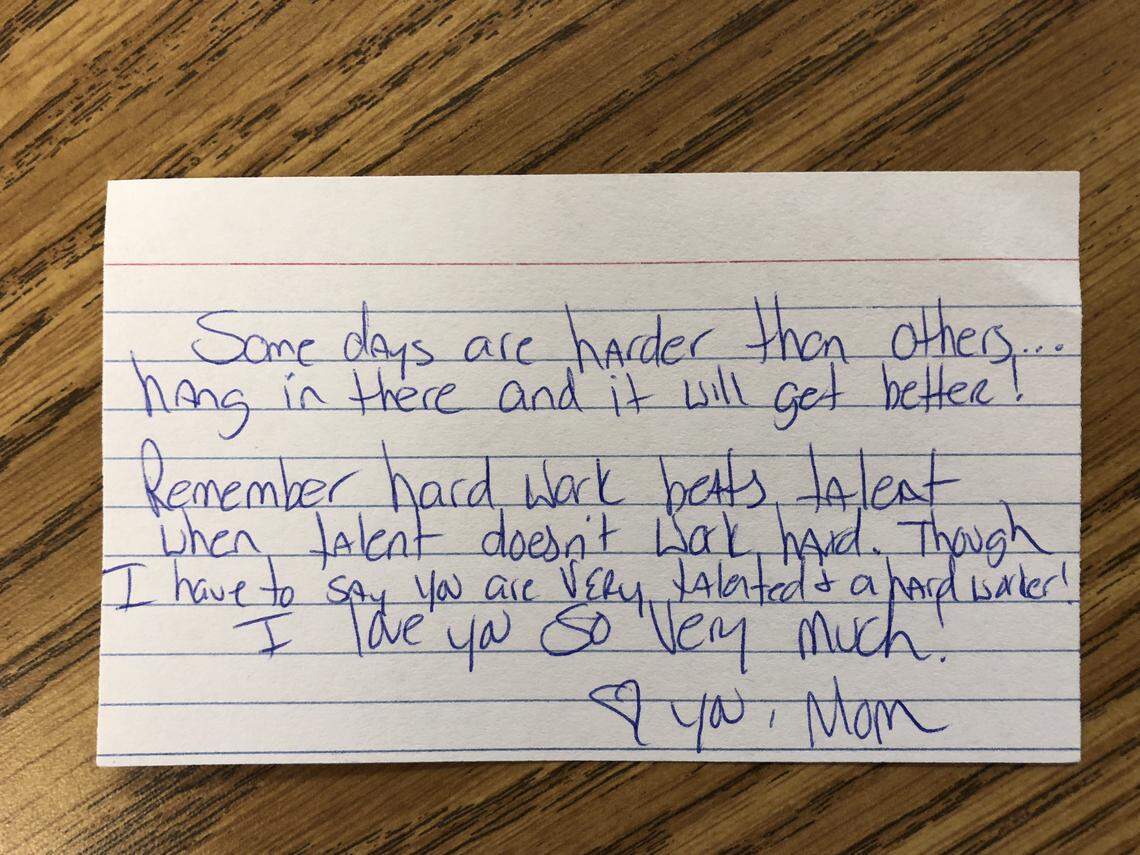 Some days are harder than others...
hang in there and it will get better!
Remember hard work beats talent
when talent doesn't work hard. Though
I have to say you are very talented & a hard worker!
I love you so very much!
♡ you, Mom